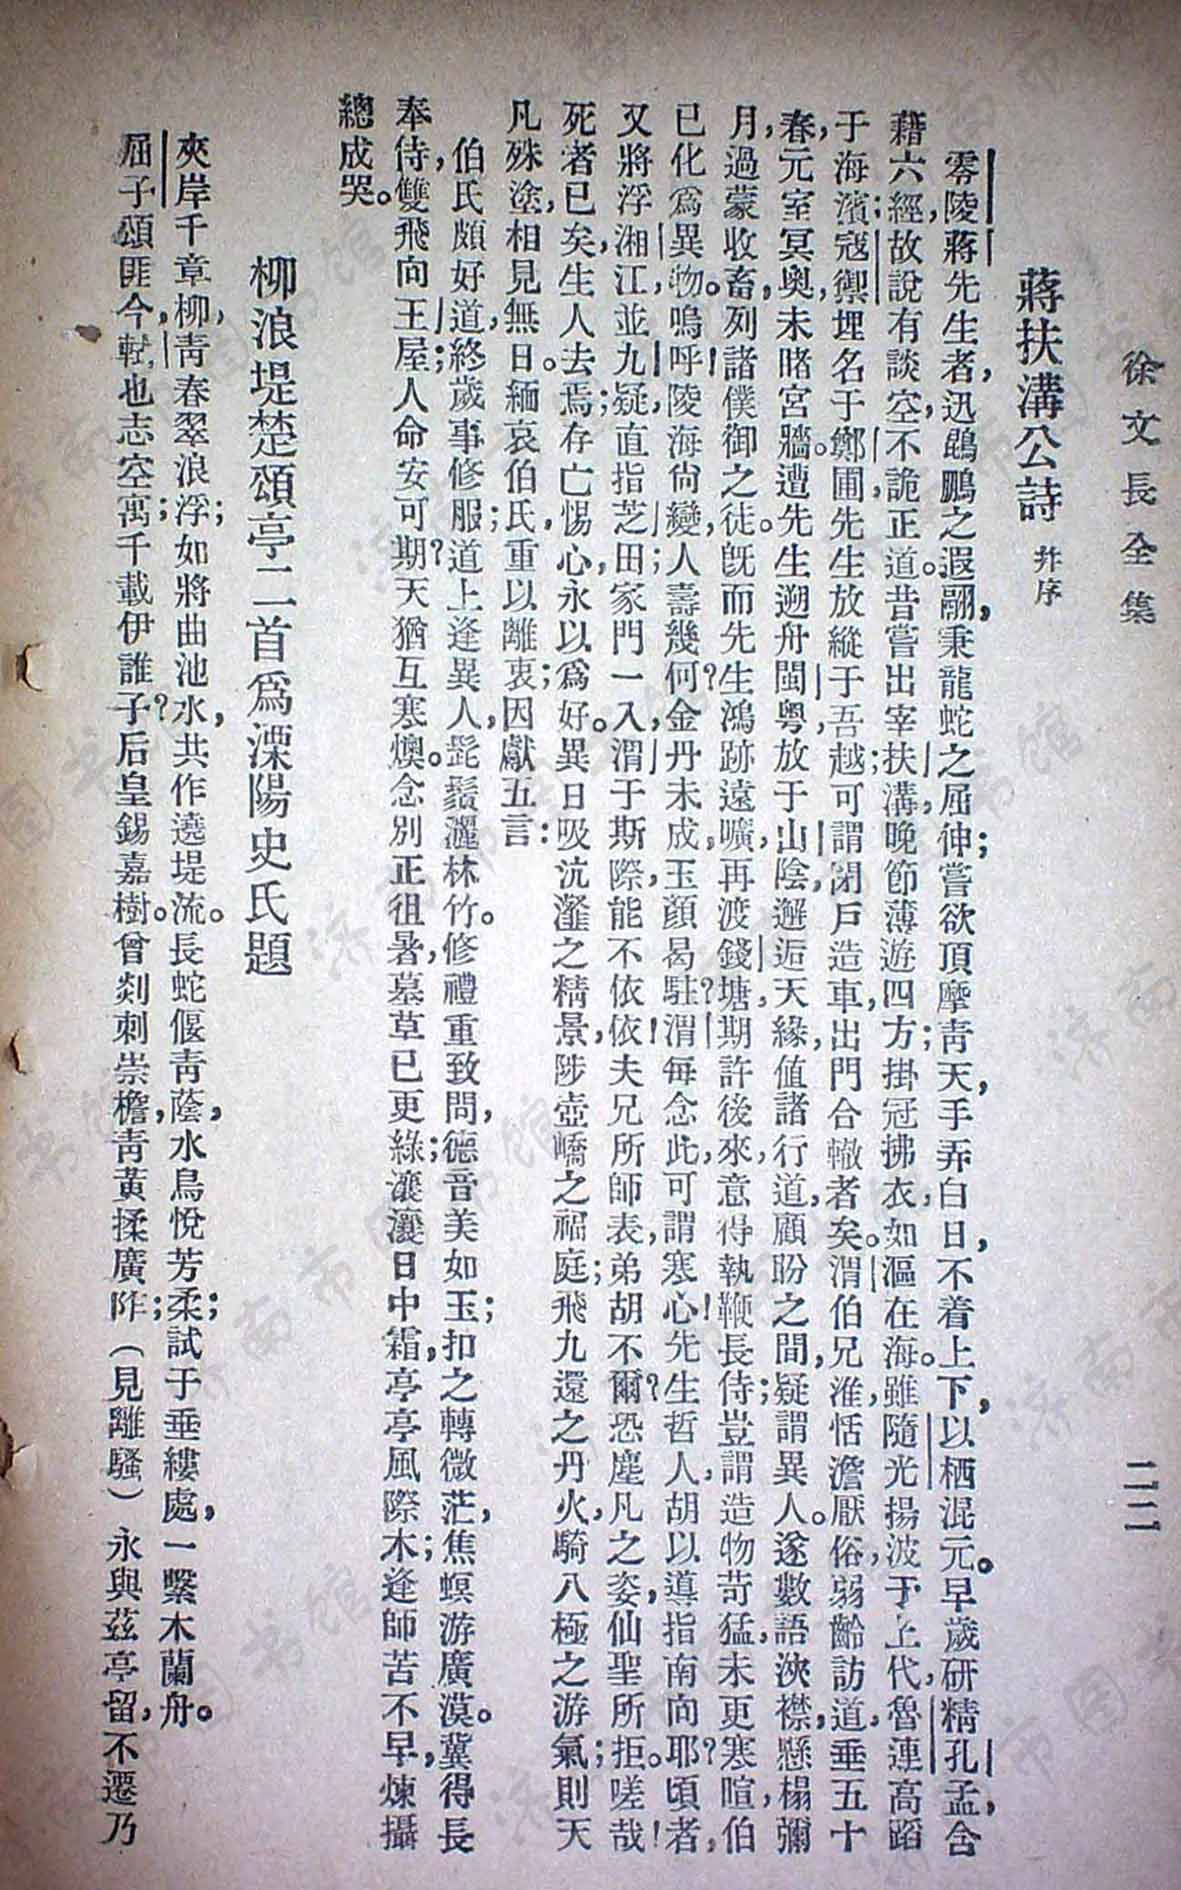 徐文長全集
二二
蔣扶溝公詩 幷序
零陵蔣先生者，迅鷗鵬之遐翮，秉龍蛇之屈伸；嘗欲頂摩靑天，手弄白日，不着上下，以栖混元。早歲研精孔孟，含
藉六經；故說有談空，不詭正道。昔嘗出宰扶溝，晚節薄遊四方，掛冠拂衣，如漚在海。雖隨光揚波于上代，魯連高蹈
于海濱，寇禦埋名于鄭圃，先生放縱于吾越，可謂閉戶造車，出門合轍者矣。渭伯兄淮，恬澹厭俗，弱齡訪道，垂五十
春，元室冥奧，未睹宮牆。遭先生遡舟閩粤，放于山陰，邂逅天緣，値諸行道，顧盼之間，疑謂異人。遂數語浹襟，懸榻彌
月，過蒙收畜，列諸僕御之徒。旣而先生鴻跡遠曠，再渡錢塘，期許後來，意得執鞭長侍；豈謂造物苛猛，未更寒暄，伯
已化爲異物。嗚呼！陵海尙變，人壽幾何？金丹未成，玉顏曷駐？渭每念此，可謂寒心！先生哲人，胡以導指南向耶？頃者，
又將浮湘江，並九疑，直指芝田，家門一入，渭于斯際，能不依依！夫兄所師表，弟胡不爾？恐塵凡之姿，仙聖所拒。嗟哉！
死者已矣，生人去焉；存亡惕心，永以爲好。異日吸沆瀣之精景，陟壺嶠之福庭；飛九還之丹火，騎八極之游氣；則天
凡殊塗，相見無日。緬哀伯氏，重以離衷；因獻五言：
伯氏頗好道，終歲事修服；道上逢異人，髭鬚灑林竹。修禮重致問，德音美如玉；扣之轉微茫，焦螟游廣漠。冀得長
奉侍，雙飛向王屋；人命安可期？天猶互寒燠。念別正徂暑，墓草已更綠；瀼瀼日中霜，亭亭風際木；逢師苦不早，煉攝
總成哭。
柳浪堤楚頌亭二首爲溧陽史氏題
夾岸千章柳，靑春翠浪浮；如將曲池水，共作遶堤流。長蛇偃靑蔭，水鳥悅芳柔；試于垂縷處，一繫木蘭舟。
屈子頌匪今，軾也志空寓；千載伊誰子？后皇錫嘉樹。曾剡刺崇檐，靑黃揉廣阼；（見離騷）永與茲亭留，不遷乃